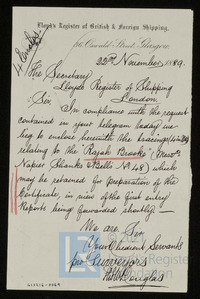 Lloyd's Register of British & Foreign Shipping,
36 Oswald Street, Glasgow,
22nd November 1889.
The Secretary
Lloyds Register of Shipping
London.
Sir,
In compliance with the request
contained in your telegram today we
beg to enclose herewith the tracings
relating to the "Rajah Brooke" (Messrs
Napier Shanks & Bells No 48) which
may be retained for preparation of the
Certificate, in view of the first entry
Report being forwarded shortly.
We are, Sir
Your Obedient Servants
for Surveyors